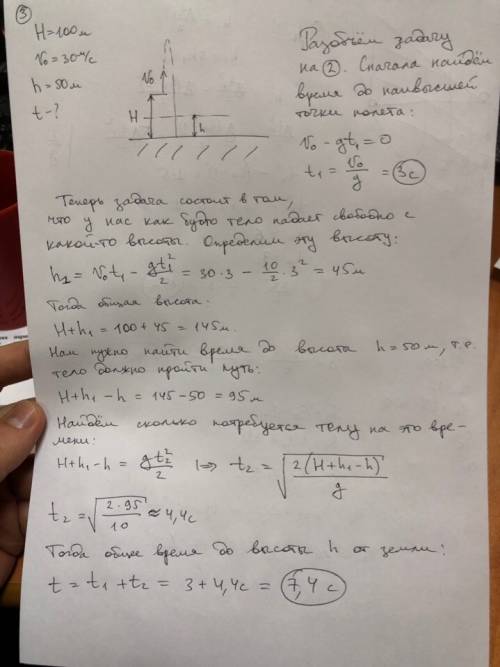 ③
H=100м
v₀ = 30 м/с
h = 50м
t - ?
v₀
H
h
Разобьём задачу
на ②. Сначала найдём
время до наивысшей
точки полета:
v₀ - gt₁ = 0
t₁ = v₀/g = 3с
Теперь задача состоит в том,
что у нас как будто тело падает свободно с
какой-то высоты. Определим эту высоту:
h₁ = v₀t₁ - gt₁²/2 = 30·3 - 10/2·3² = 45м
Тогда общая высота:
H+h₁ = 100 + 45 = 145м.
Нам нужно найти время до высоты h = 50м, т.е.
тело должно пройти путь:
H+h₁-h = 145-50 = 95м
Найдём сколько потребуется телу на это вре-
мени:
H+h₁-h = gt₂²/2 |⇒ t₂ = √(2(H+h₁-h)/g)
t₂ = √(2·95/10) ≈ 4,4с
Тогда общее время до высоты h от земли:
t = t₁ + t₂ = 3 + 4,4с = 7,4 с